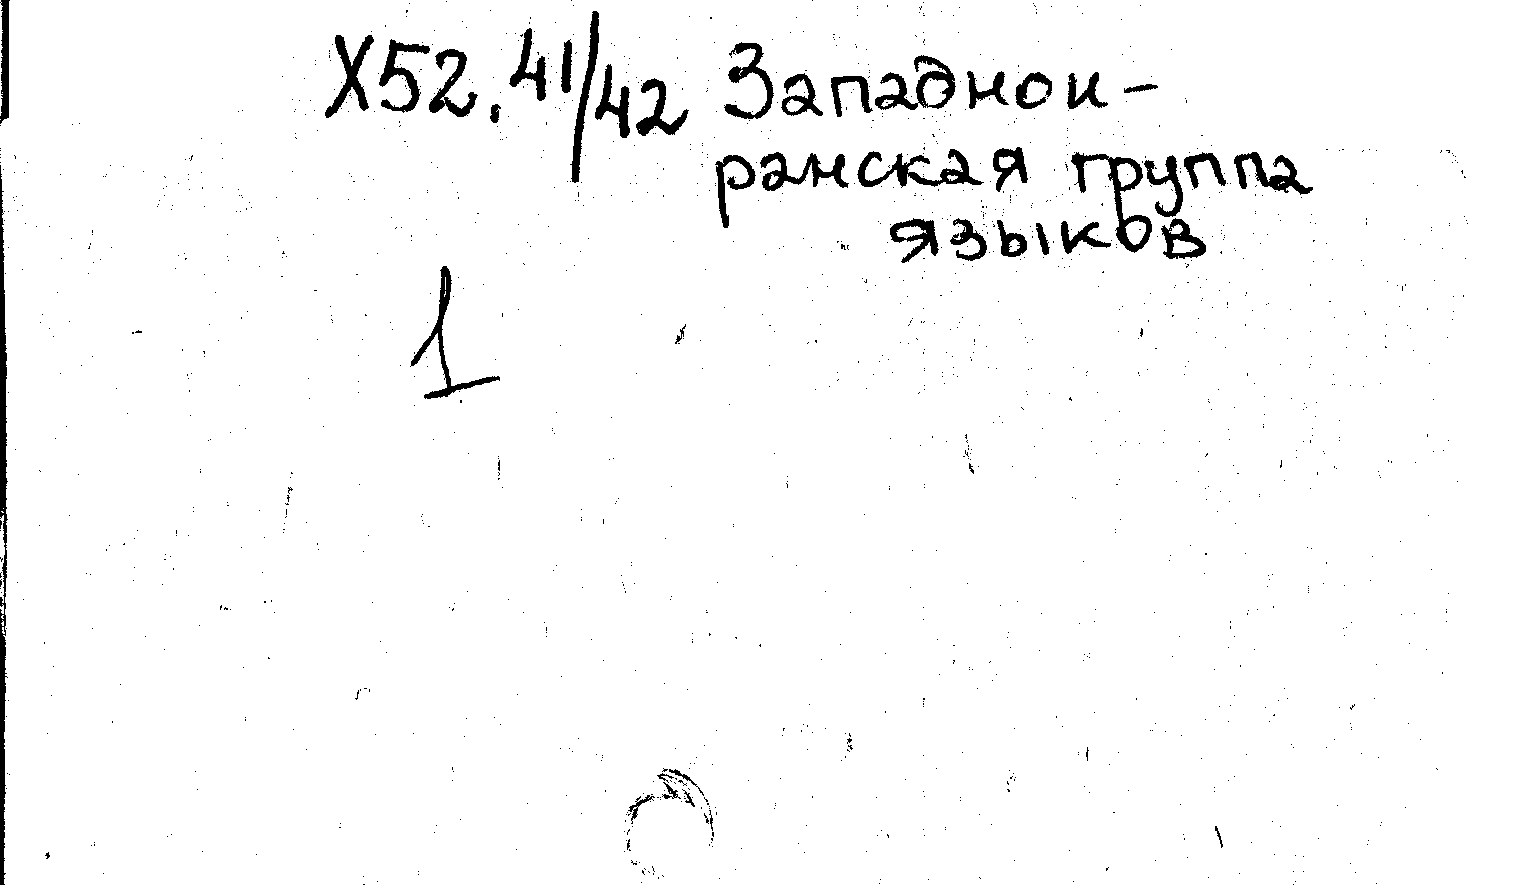 X52.41/42 Западнои-
ранская группа
языков
1